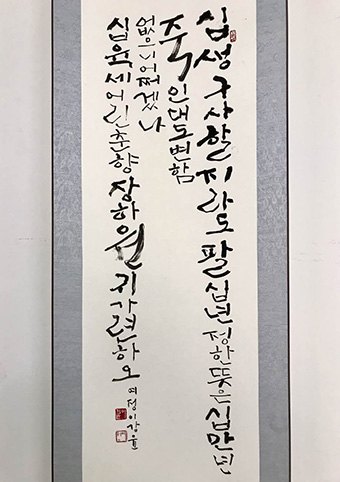 십생구사할지라도팔십년정한뜻은십만년
죽인대도변함
없으니어쩌겠나
십육세어린춘향장하원귀가련하오
여정